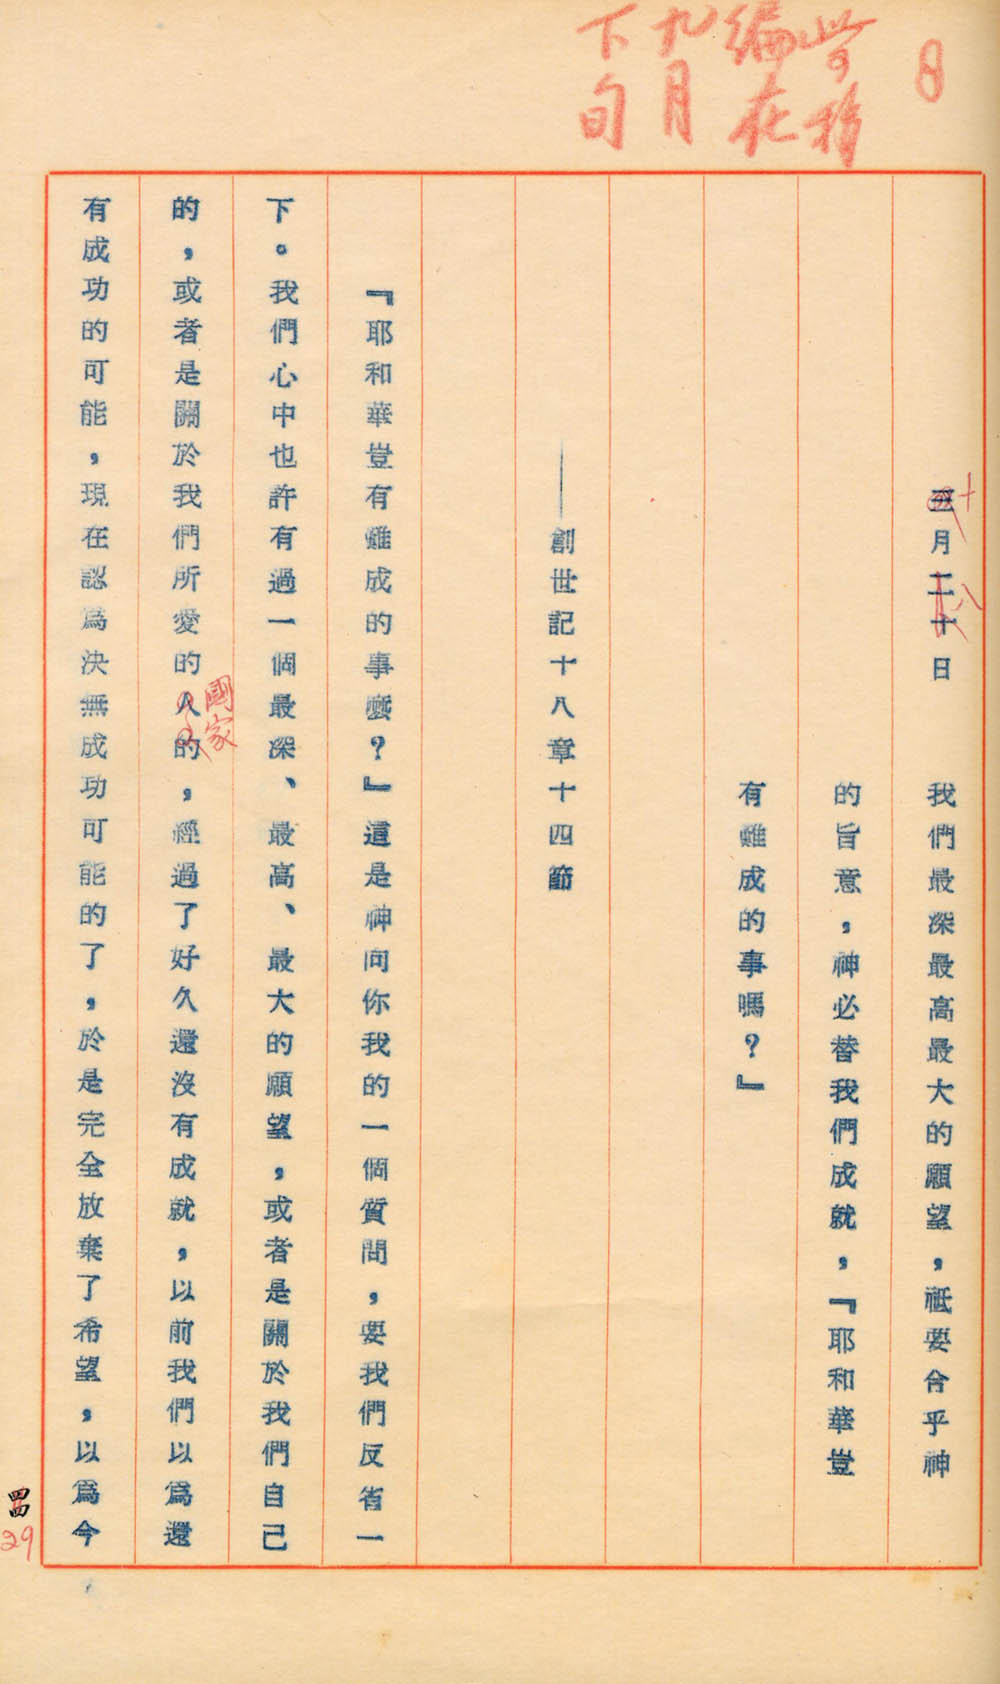 8
此可移
編在
九月
下旬
三月二十日
十
八
我們最深最高最大的願望，祇要合乎神
的旨意，神必替我們成就，『耶和華豈
有難成的事嗎？』
——創世記十八章十四節
『耶和華豈有難成的事麼？』這是神向你我的一個質問，要我們反省一
下。我們心中也許有過一個最深、最高、最大的願望，或者是關於我們自己
的，或者是關於我們所愛的人的，經過了好久還沒有成就，以前我們以為還
國家
有成功的可能，現在認為決無成功可能的了，於是完全放棄了希望，以為今
29